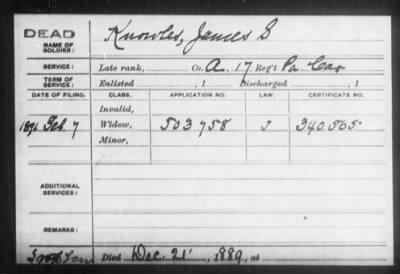 DEAD
NAME OF SOLDIER:
Knowles, James S
SERVICE:
Late rank, Co. A. 17 Reg't Pa. Cav
TERM OF SERVICE:
Enlisted , 1 Discharged , 1
DATE OF FILING. CLASS. APPLICATION NO. LAW. CERTIFICATE NO.
Invalid,
Feb. 7 Widow, 503758 340.505
Minor,
ADDITIONAL SERVICES:
REMARKS:
Died Dec. 21, 1889, at